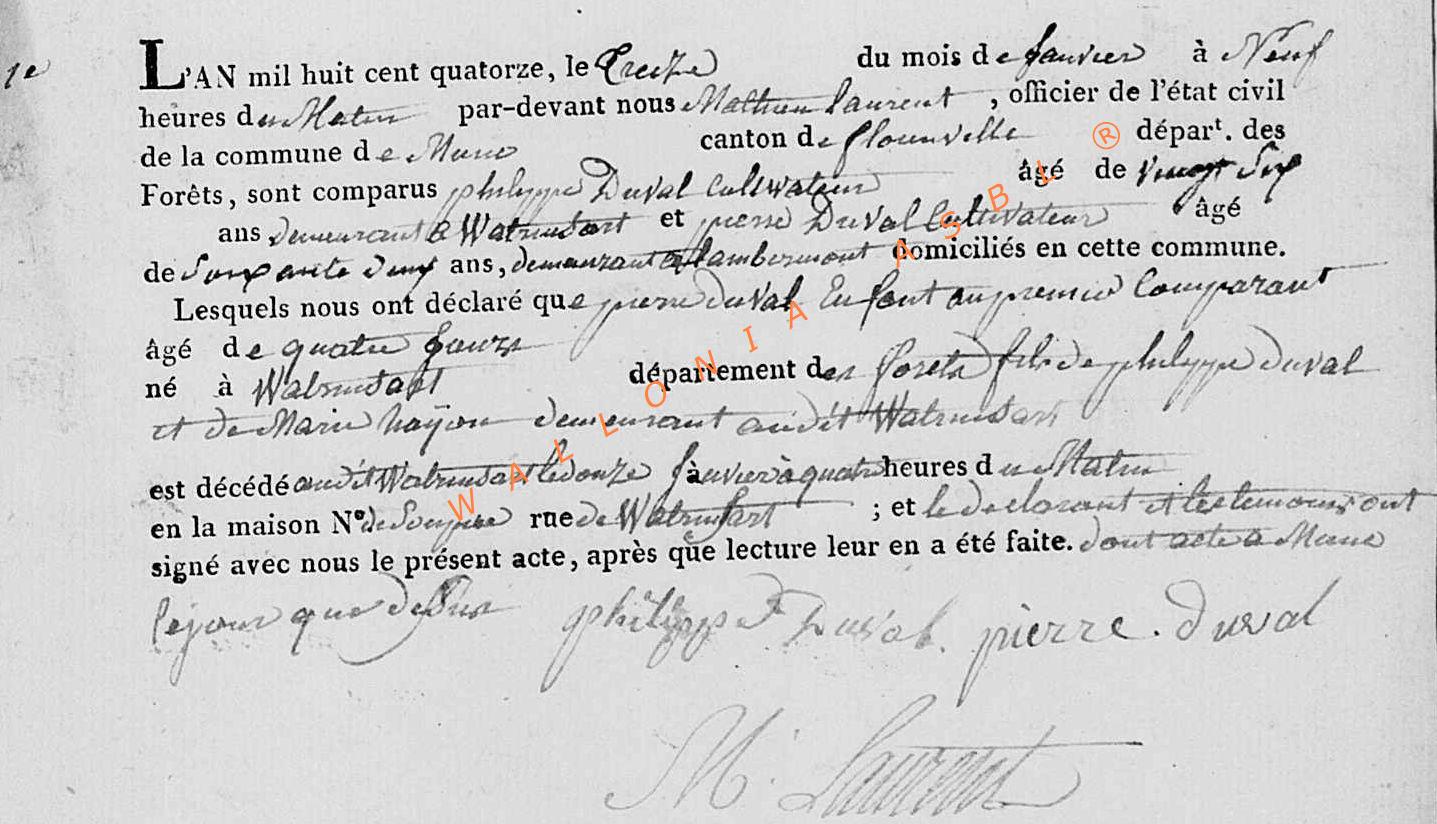 1e
L'AN mil huit cent quatorze, le Treize du mois de Janvier à Neuf
heures du Matin par-devant nous Mathieu Laurent, officier de l'état civil
de la commune de Muno canton de florenville départ. des
Forêts, sont comparus philippe Duval Cultivateur âgé de vingt Six
ans demeurant à Watrinsart et pierre Duval Cultivateur âgé
de Soixante deux ans, demeurant a lambermont domiciliés en cette commune.
Lesquels nous ont déclaré que pierre duval Enfant au premier Comparant
âgé de quatre jours
né à Watrinsart département des forets fils de philippe duval
et de Marie hayon demeurant audit Watrinsart
est décédé audit Watrinsart le douze janvier à quatre heures du Matin
en la maison N° de rue de Watrinsart ; et le declarant et les temoins ont
signé avec nous le présent acte, après que lecture leur en a été faite. dont acte a Muno
le jour que dessus philippe Duval. pierre. duval
M. Laurent
WALLONIA ASBL ®